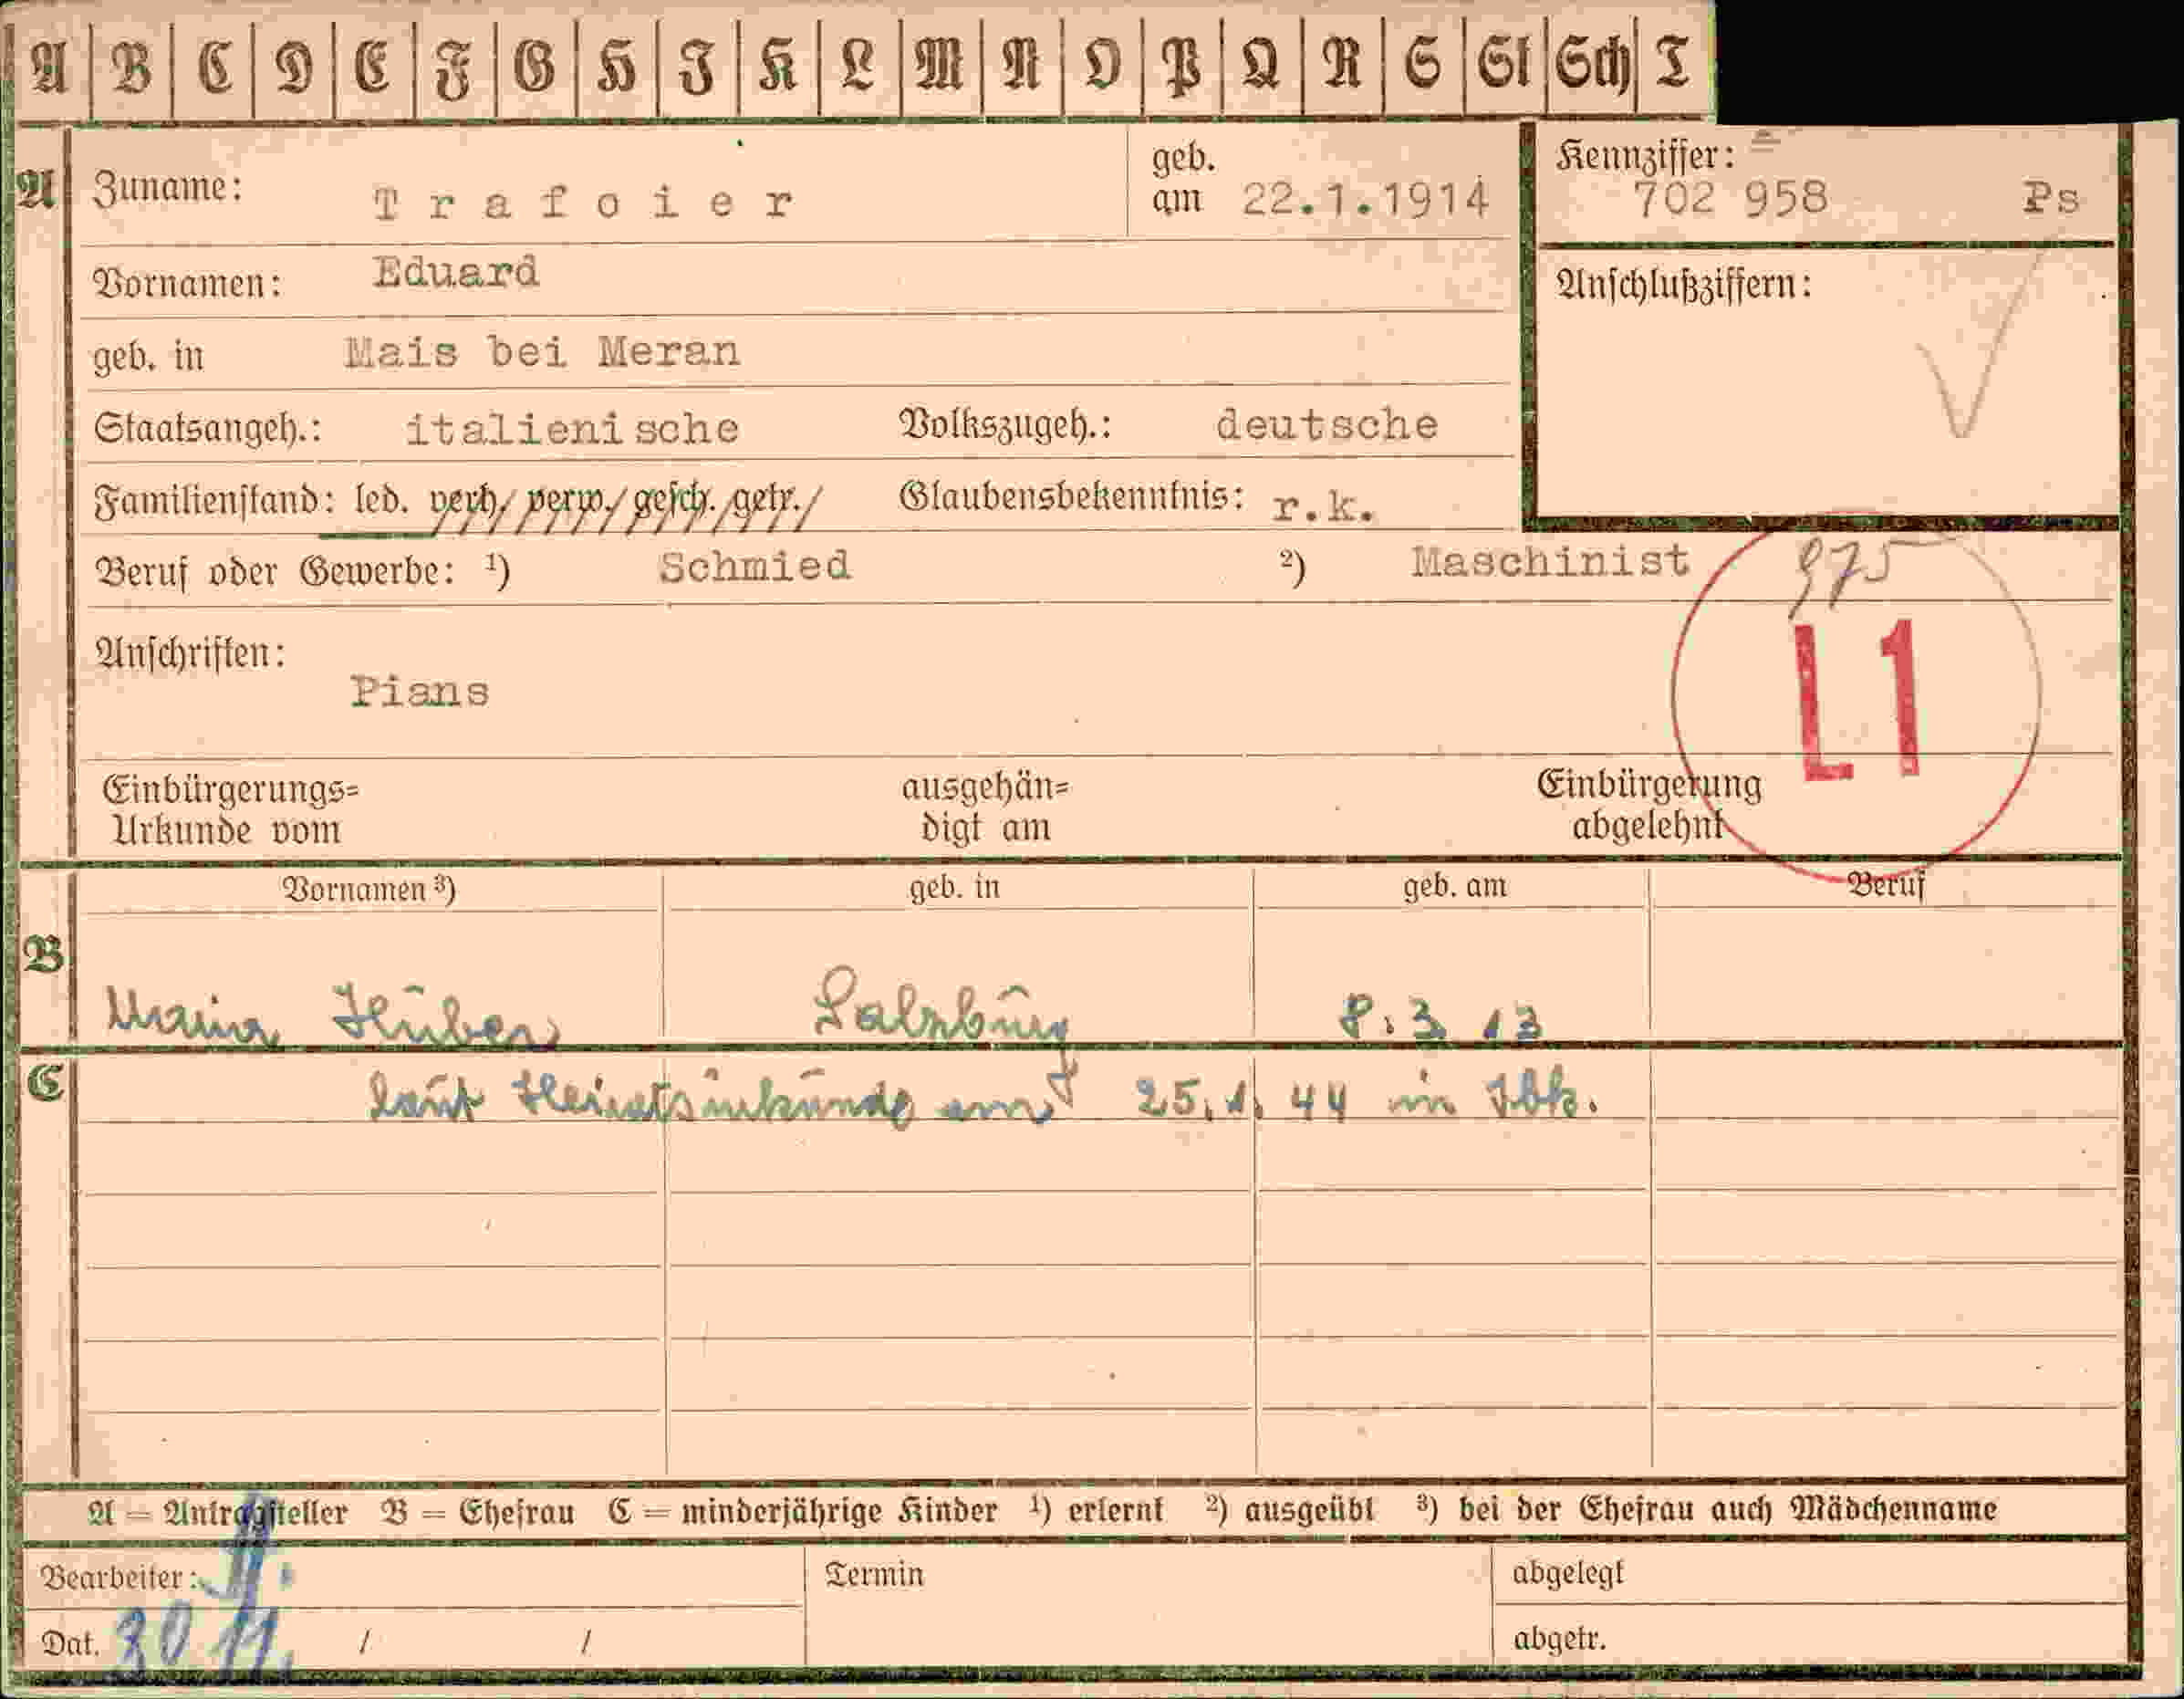 A B C D E F G H I K L M N O P Q R S St Sch T
A Zuname: Trafoier geb. am 22.1.1914 Kennziffer: 702 958 Ps
Vornamen: Eduard Anschlußziffern:
geb. in Mais bei Meran
Staatsangeh.: italienische Volkszugeh.: deutsche
Familienstand: led. verh. verw. gesch. getr. Glaubensbekenntnis: r.k.
Beruf oder Gewerbe: ¹) Schmied ²) Maschinist 975
Anschriften:
Pians
L1
Einbürgerungs=
Urkunde vom
ausgehän=
digt am
Einbürgerung
abgelehnt
Vornamen ³) geb. in geb. am Beruf
B
Maria Huber Salzburg 8.3.13
C laut Heiratsurkunde am 25.1.44 in Ibk.
A = Antragsteller B = Ehefrau C = minderjährige Kinder ¹) erlernt ²) ausgeübt ³) bei der Ehefrau auch Mädchenname
Bearbeiter: Termin abgelegt
Dat. 30 11. / / abgetr.